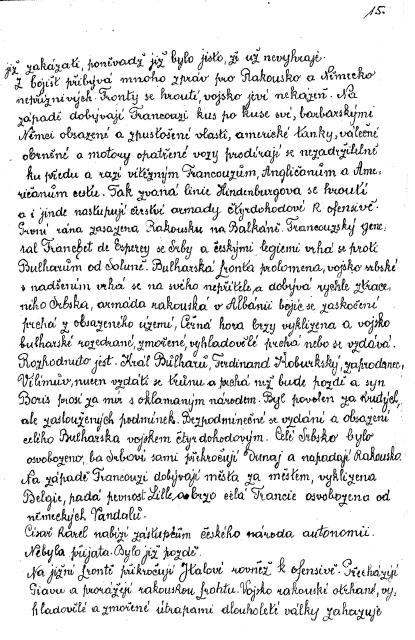 15.
již zakázati, poněvadž již bylo jisto, že už nevyhraje.
Z bojišť přibývá mnoho zpráv pro Rakousko a Německo
nepříznivých. Fronty se hroutí, vojsko jeví nekázeň. Na
západě dobývají Francouzi kus po kuse své, barbarskými
Němci obsazené a zpustošené vlasti, americké tanky, válečné
obrněné a motory opatřené vozy prodírají se nezadržitelně
ku předu a razí vítězným Francouzům, Angličanům a Ame-
ričanům cestu. Tak zvaná linie Hindenburgova se hroutí
a i jinde nastupují čerství armady čtyrdohodové k ofensivě.
První rána zasazena Rakousku na Balkáně. Francouzský gene-
rál Franchet de Esperey se Srby a českými legiemi vrhá se proti
Bulharům od Soluně. Bulharská fronta prolomena, vojsko srbské
s nadšením vrhá se na svého nepřítele, a dobývá rychle ztrace-
ného Srbska, armáda rakouská v Albánii bojíc se zaskočení
prchá z obsazeného území, Černá hora brzy vyklizena a vojsko
bulharské rozedrané, zmořené, vyhladovělé prchá nebo se vzdává.
Rozhodnuto jest. Král Bulharů, Ferdinand Koburkský, zaprodanec,
Vilímův, nucen vzdáti se trůnu a prchá než bude pozdě a syn
Boris prosí za mír s oklamaným národem. Byl povolen za krutých,
ale zasloužených podmínek. Bezpodmínečné se vzdání a obsazení
celého Bulharska vojskem čtyrdohodovým. Celé Srbsko bylo
osvobozeno, ba Srbové sami překročují Dunaj a napadají Rakousko.
Na západě Francouzi dobývají města za městem, vyklizena
Belgie, padá pevnost Lille, a brzo celá Francie osvobozena od
německých Vandalů.
Císař Karel nabízí zástupcům českého národa autonomii.
Nebyla přijata. Bylo již pozdě.
Na jižní frontě přikročují Italové rovněž k ofensivě. Přecházejí
Piavu a prorážejí rakouskou frontu. Vojsko rakouské otrhané, vy-
hladovělé a zmořené útrapami dlouholeté války zahazuje